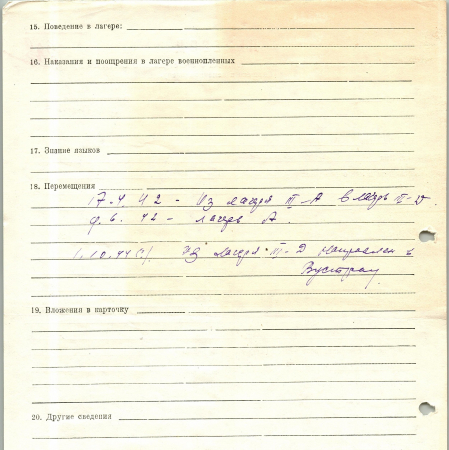 15. Поведение в лагере:
16. Наказания и поощрения в лагере военнопленных
17. Знание языков
18. Перемещения
17.4.42 - Из лагеря III-А в лагерь III-D.
9.6.42 - лагерь А.
1.10.44 (?). Из лагеря III-D направлен в
19. Вложения в карточку
20. Другие сведения